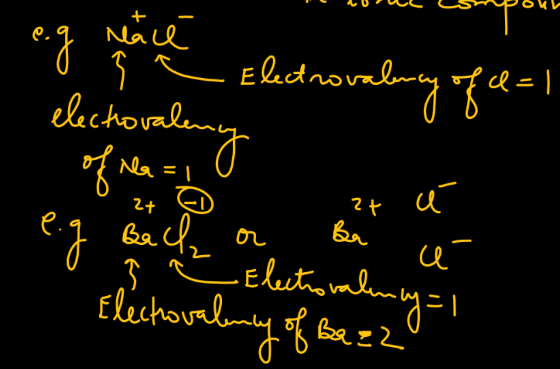 ionic compoun
e.g Na⁺Cl⁻
Electrovalency of Cl = 1
electrovalency
of Na = 1
e.g Ba²⁺Cl₂⁻¹ or Ba²⁺ Cl⁻
Cl⁻
Electrovalency = 1
Electrovalency of Ba = 2